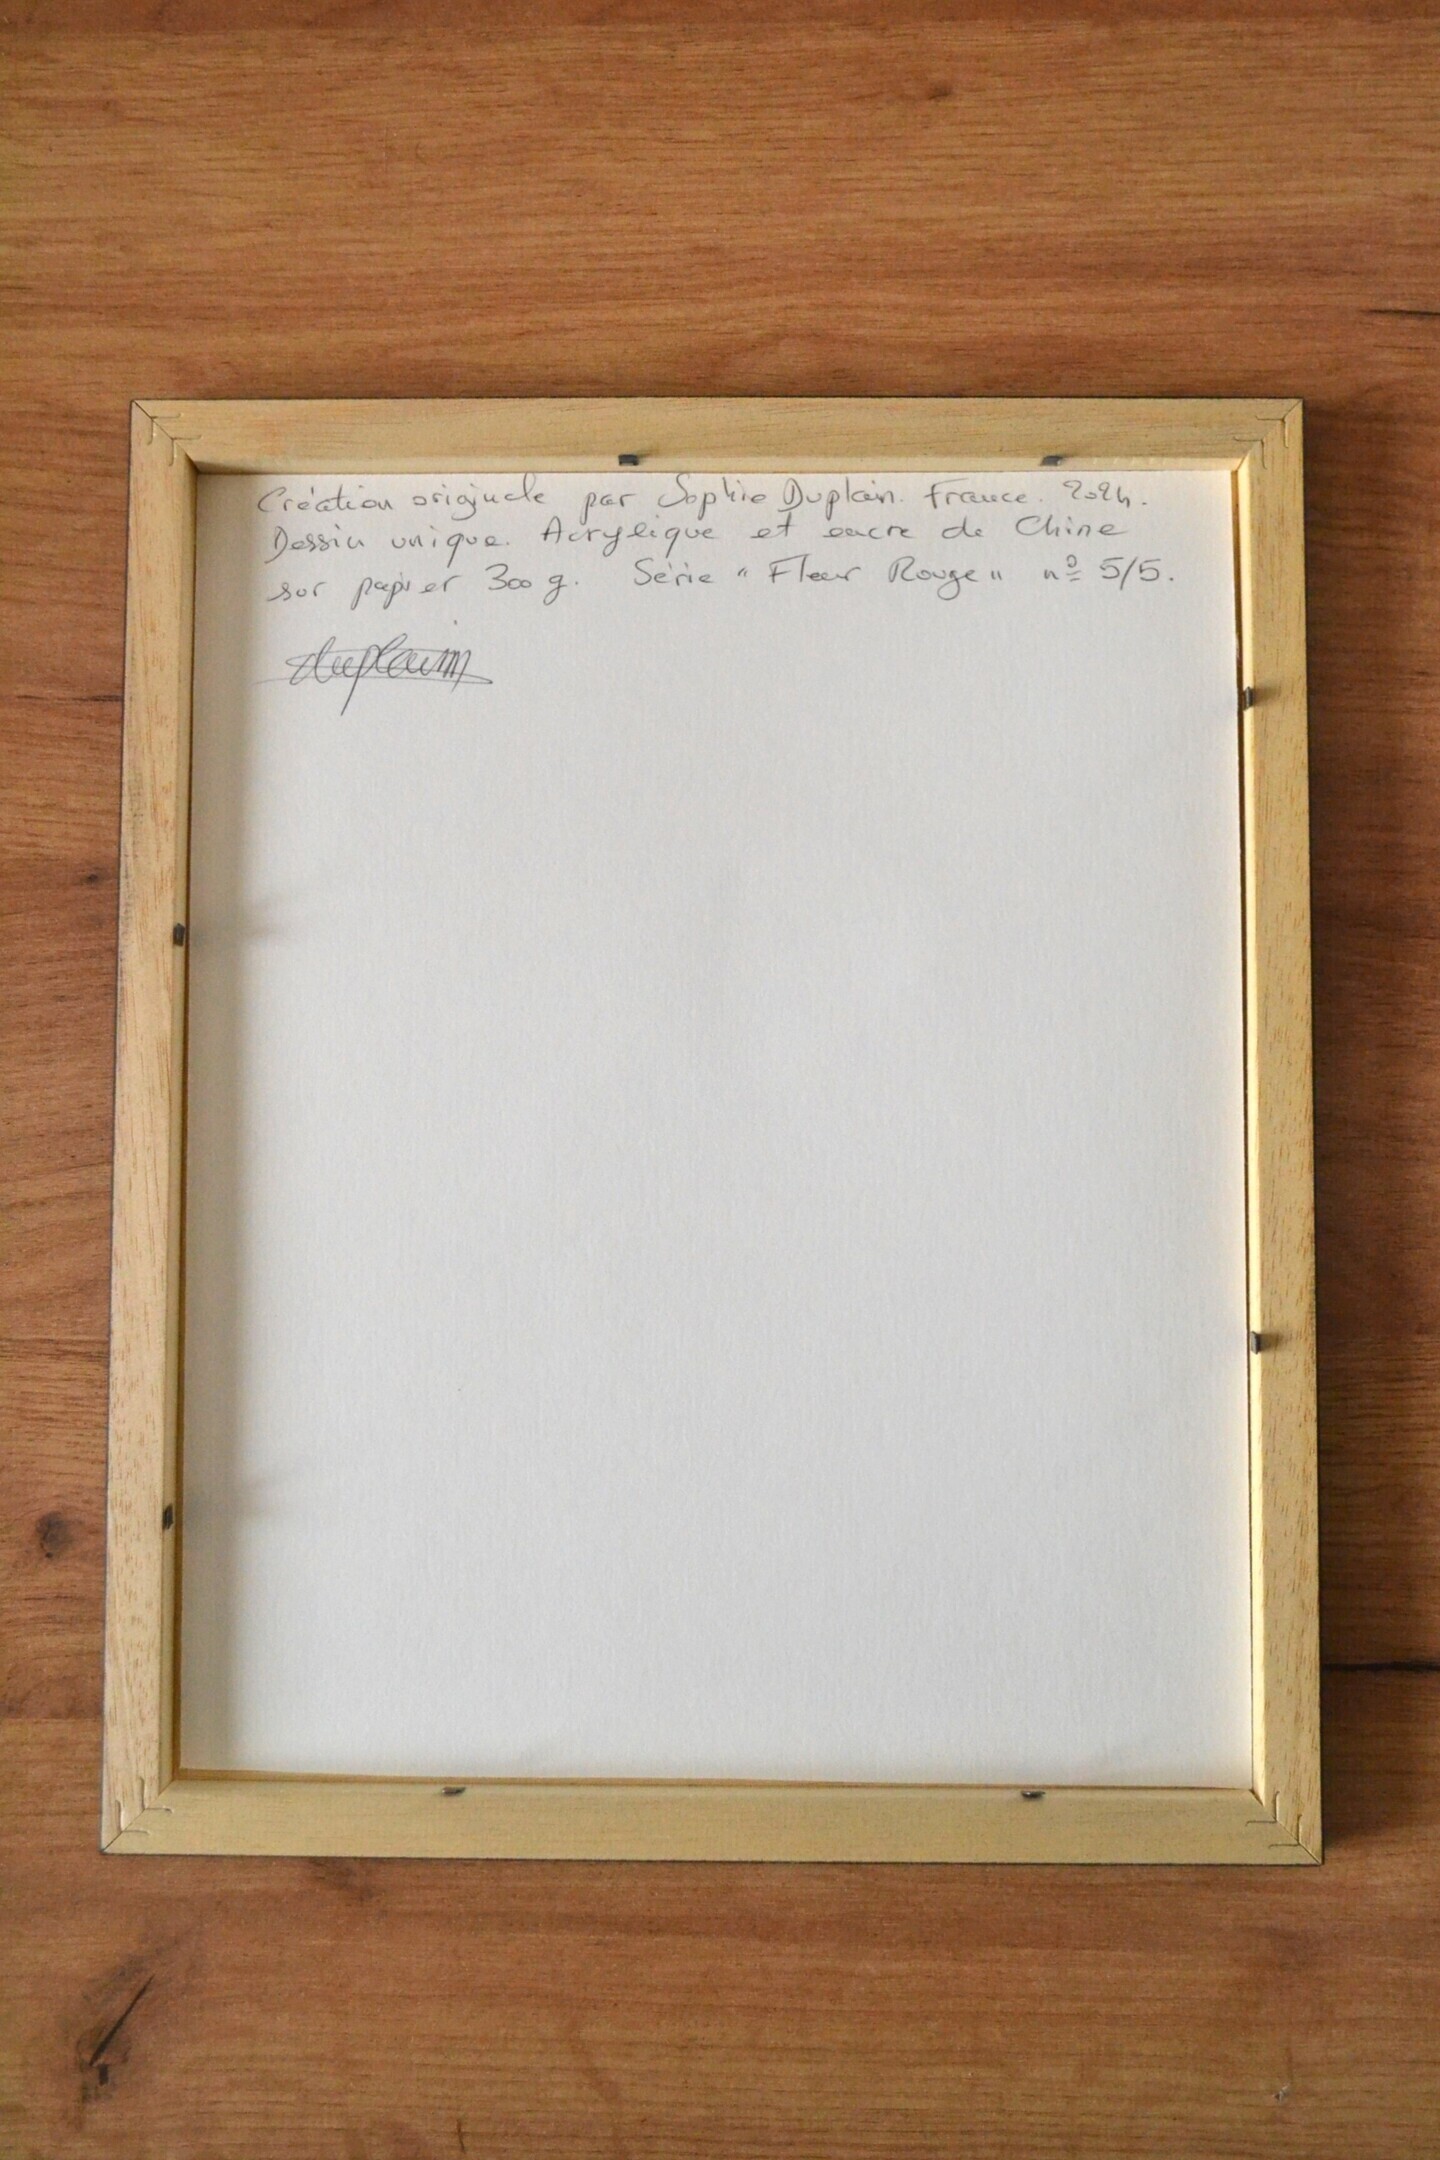 Création originale par Sophie Duplain. France. 2024.
Dessin unique. Acrylique et encre de Chine
sur papier 300 g. Série "Fleur Rouge" nº 5/5.
duplain